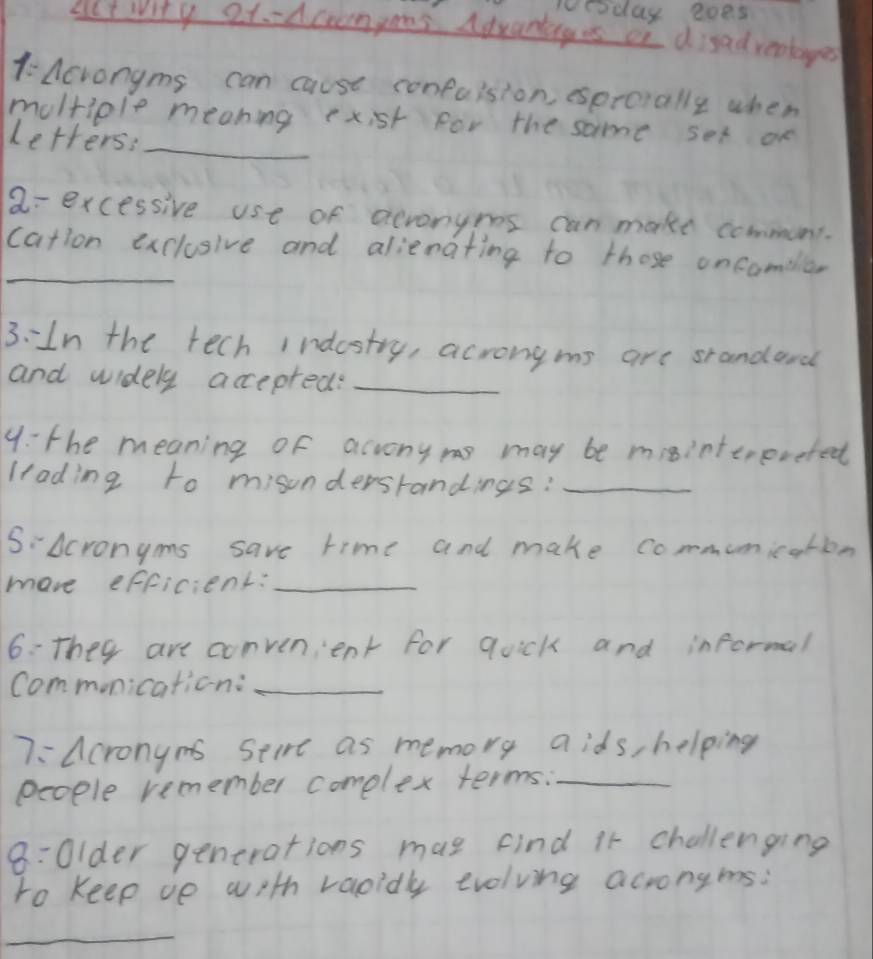 Activity 21.- Acronyms Advantages or disadvantages
1.- Acronyms can cause confuision, esprcially when
multiple meaning exist for the same set of
Letters:
2.- excessive use of acronyms can make communi-
cation exclusive and alienating to those unfamiliar
3.- In the tech industry, acronyms are standard
and widely accepted:
4.- the meaning of acronyms may be misinterpreted
leading to misunderstandings:
5.- Acronyms save time and make communication
more efficient:
6.- They are convenient for quick and informal
Communication:
7.- Acronyms serve as memory aids, helping
people remember complex terms:
8.- Older generations may find it challenging
to keep up with rapidly evolving acronyms: